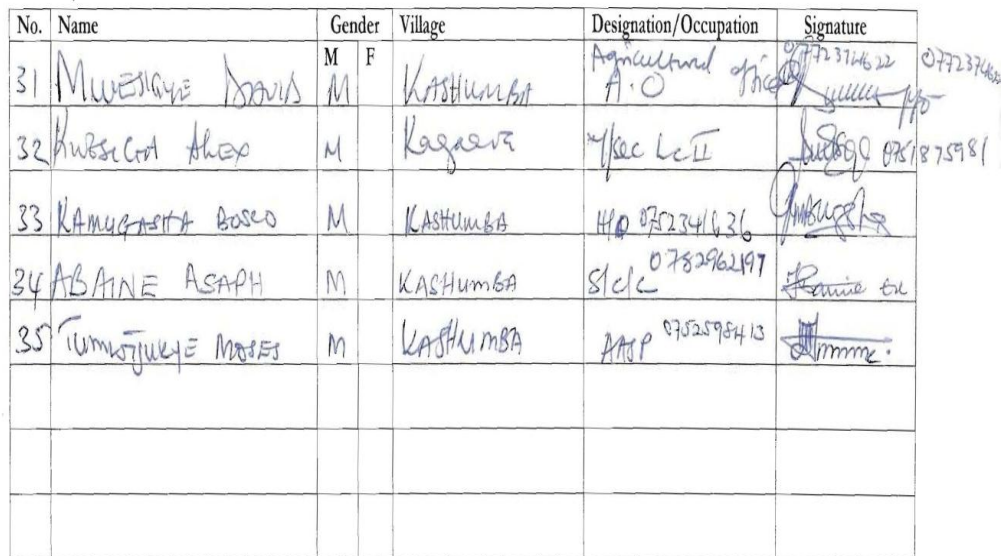 No. Name Gender Village Designation/Occupation Signature
M F
31 MWESIGYE DAVID M KASHUMBA Agricultural Officer A.O 0772374622 0772374622
32 KWESIGA ALEX M Kagaava LC II 0751875981
33 KAMUGASHA BOSCO M KASHUMBA 0752341636
34 ABAINE ASAPH M KASHUMBA S/c/c 0782962197
35 MOSES M KASHUMBA 0752598413